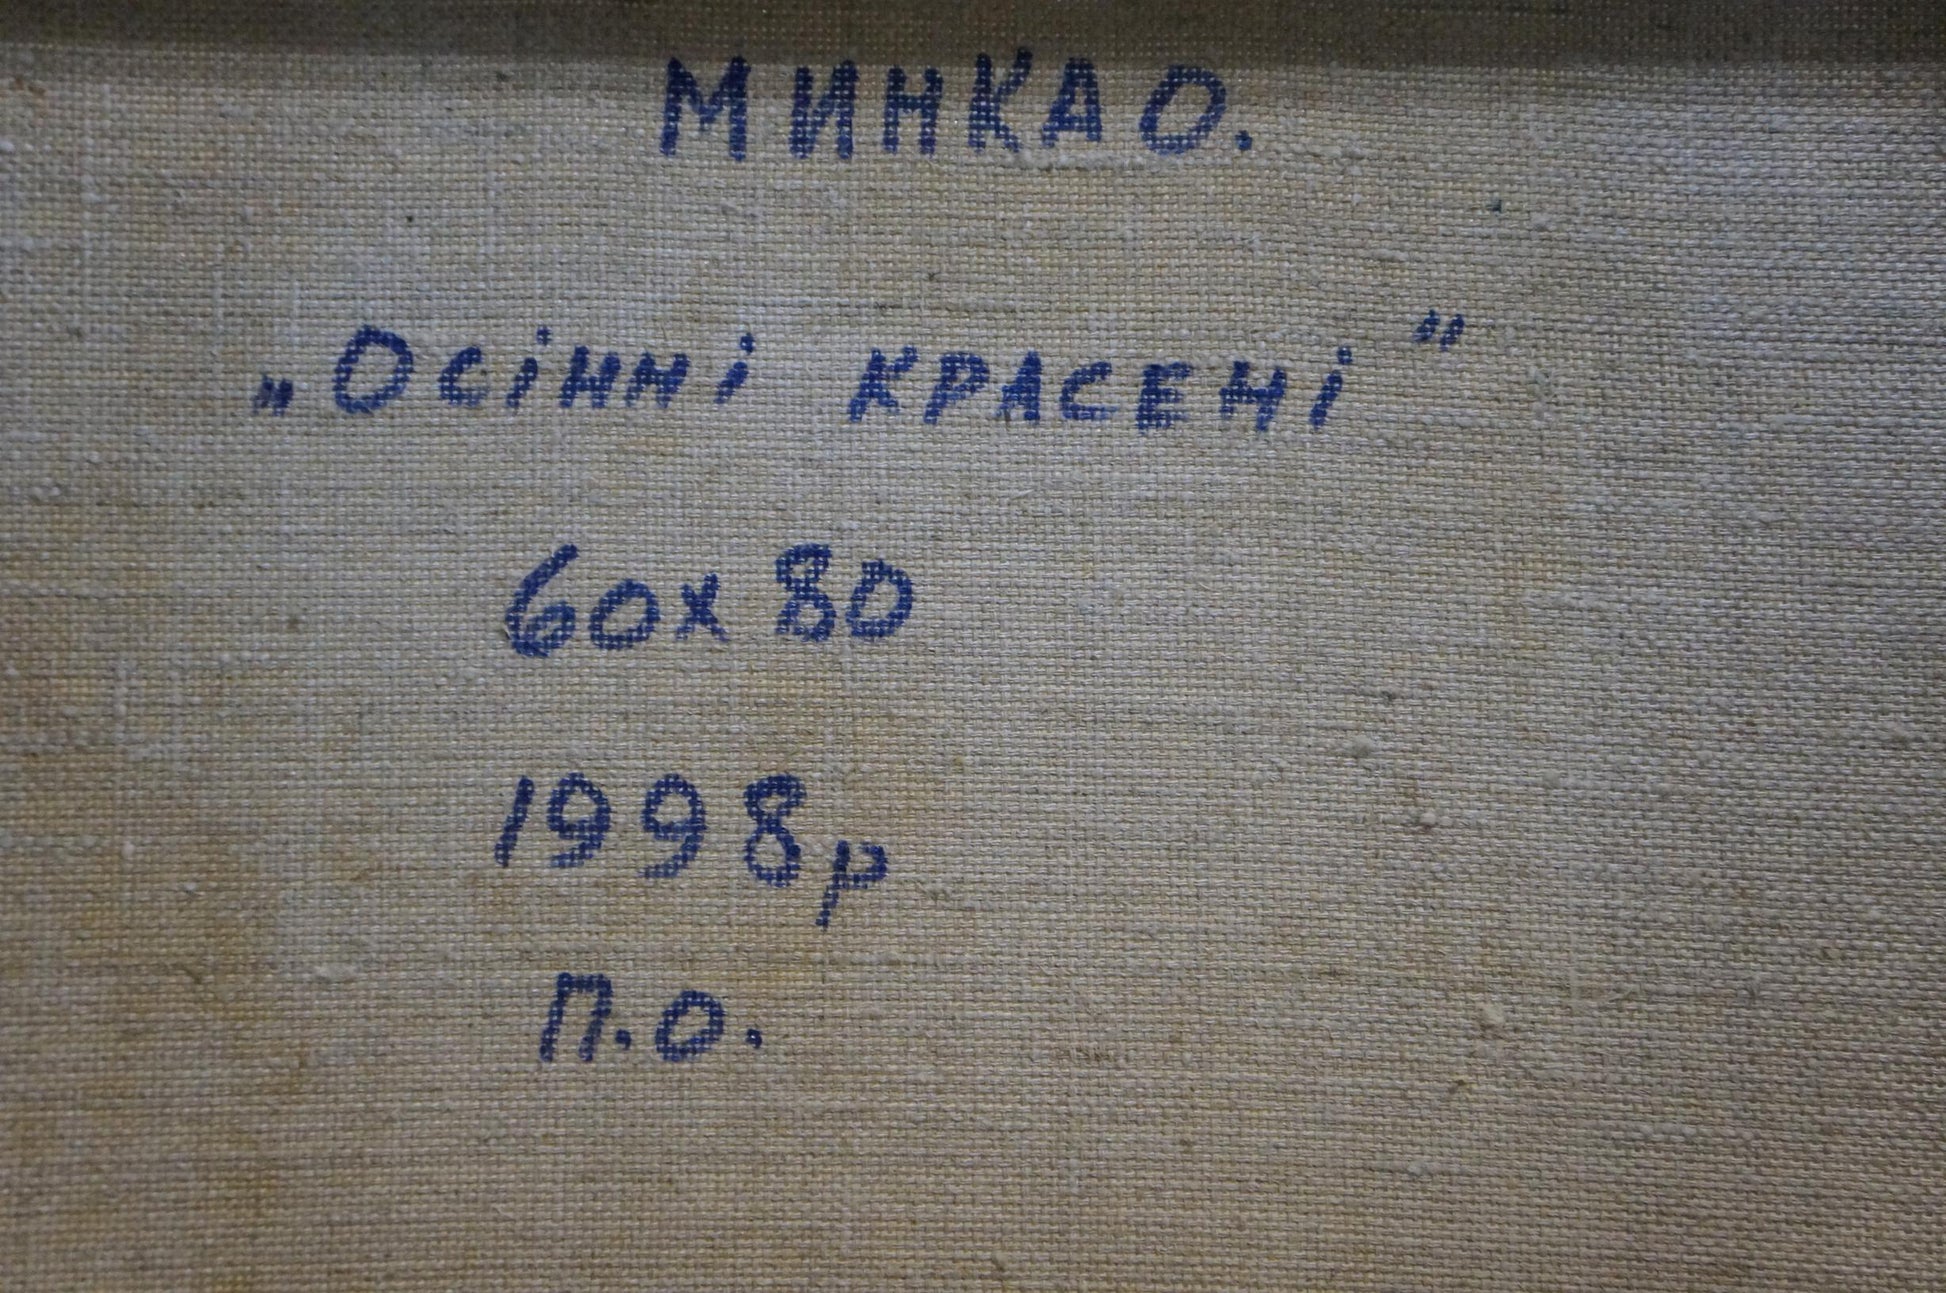 МИНКА О.
„Осінні красені"
60х80
1998р
П.О.